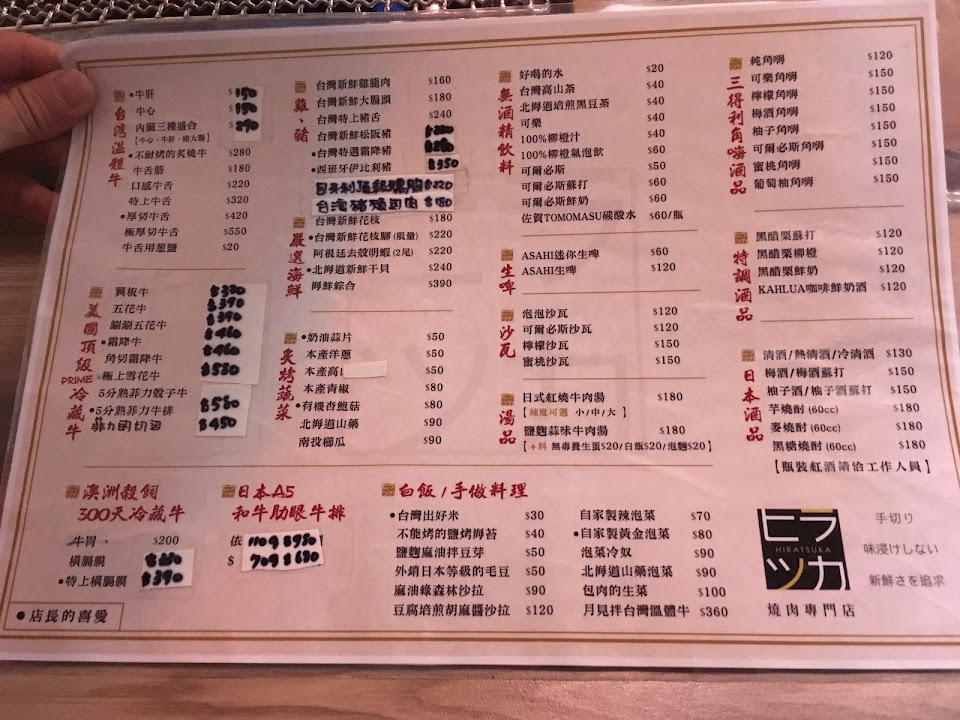 台灣溫體牛
•牛肝 $150
牛心 $150
內臟三種盛合 $290
【牛心、牛肝、豬大腸】
•不耐烤的炙燒牛 $280
牛舌筋 $180
口感牛舌 $220
特上牛舌 $320
•厚切牛舌 $420
極厚牛舌 $550
牛舌用蔥鹽 $20
美國頂級PRIME冷藏牛
翼板牛 $330
五花牛 $390
涮涮五花牛 $390
•霜降牛 $460
角切霜降牛 $460
極上雪花牛 $580
5分熟菲力骰子牛
•5分熟菲力牛排 $580
菲力的切羽 $450
雞、豬
台灣新鮮雞腿肉 $160
台灣新鮮大腸頭 $180
台灣特上豬舌 $240
台灣新鮮松阪豬
•台灣特選霜降豬
•西班牙伊比利豬 $350
$220
台灣豬頰肉 $180
嚴選海鮮
台灣新鮮花枝 $180
•台灣新鮮花枝腳 (限量) $220
阿根廷去殼明蝦 (2尾) $220
•北海道新鮮干貝 $240
海鮮綜合 $390
炙烤蔬菜
•奶油蒜片 $50
本產洋蔥 $50
本產高 $50
本產青椒 $80
•有機杏鮑菇 $80
北海道山藥 $90
南投櫛瓜 $90
無酒精飲料
好喝的水 $20
台灣高山茶 $40
北海道焙煎黑豆茶 $40
可樂 $40
100%柳橙汁 $40
100%柳橙氣泡飲 $60
可爾必斯 $50
可爾必斯蘇打 $60
可爾必斯鮮奶 $60
佐賀TOMOMASU碳酸水 $60/瓶
生啤
ASAHI迷你生啤 $60
ASAHI生啤 $120
沙瓦
泡泡沙瓦 $120
可爾必斯沙瓦 $120
檸檬沙瓦 $150
蜜桃沙瓦 $150
湯品
日式紅燒牛肉湯 $180
【辣度可選 小/中/大】
鹽麴蒜味牛肉湯 $180
【+料 無毒養生蛋$20/白飯$20/泡麵$20】
三得利角嗨酒品
純角嗨 $120
可樂角嗨 $150
檸檬角嗨 $150
梅酒角嗨 $150
柚子角嗨 $150
可爾必斯角嗨 $150
蜜桃角嗨 $150
葡萄柚角嗨 $150
特調酒品
黑醋栗蘇打 $120
黑醋栗柳橙 $120
黑醋栗鮮奶 $120
KAHLUA咖啡鮮奶酒 $120
日本酒品
清酒/熱清酒/冷清酒 $130
梅酒/梅酒蘇打 $150
柚子酒/柚子酒蘇打 $150
芋燒酎 (60cc) $180
麥燒酎 (60cc) $180
黑糖燒酎 (60cc) $180
【瓶裝紅酒請洽工作人員】
澳洲穀飼
300天冷藏牛
牛胃 $200
橫膈膜
•特上橫膈膜 $390
日本A5
和牛肋眼牛排
依 110g $980
$ 70g $630
白飯/手做料理
•台灣出好米 $30
不能烤的鹽烤海苔 $40
鹽麴麻油拌豆芽 $50
外銷日本等級的毛豆 $50
麻油綠森林沙拉 $90
豆腐焙煎胡麻醬沙拉 $120
自家製辣泡菜 $70
•自家製黃金泡菜 $80
泡菜冷奴 $90
北海道山藥泡菜 $90
包肉的生菜 $100
月見拌台灣溫體牛 $360
ヒラ
HIRATSUKA
ツカ
燒肉專門店
手切り
味浸けしない
新鮮さを追求
•店長的喜愛